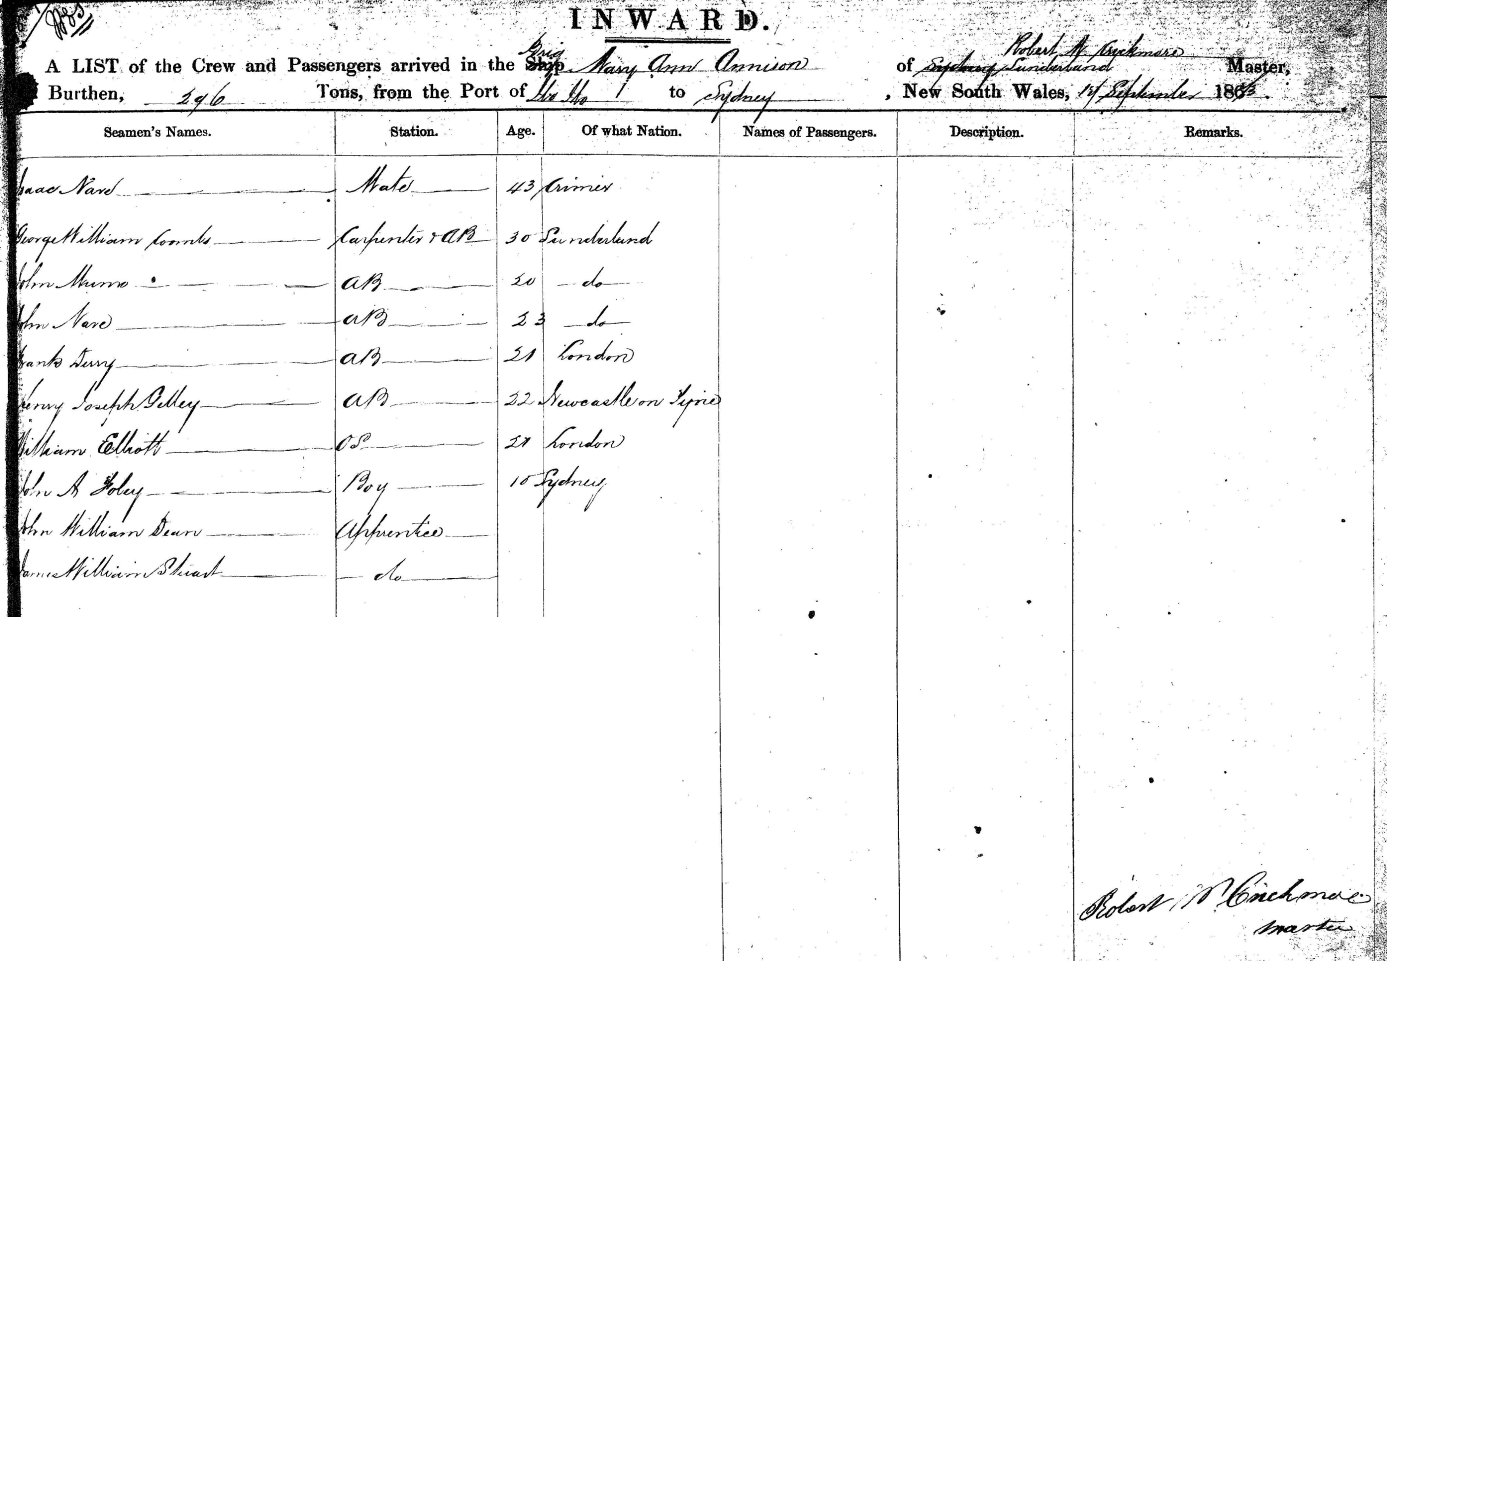 INWARD.
Brig
Robert W Crickmore
A LIST of the Crew and Passengers arrived in the Ship Mary Ann Annison of Sydney Sunderland Master,
Burthen, 296 Tons, from the Port of to Sydney, New South Wales, September 186
Seamen's Names. Station. Age. Of what Nation. Names of Passengers. Description. Remarks.
Isaac Nare Mate 43
George William Coombs Carpenter & AB 30 Sunderland
John Munro AB 20 do
John Nare AB 23 do
Frank Derry AB 21 London
Henry Joseph AB 22 Newcastle on Tyne
William Elliott OS 21 London
John A Foley Boy Sydney
John William Dean Apprentice
James William Stuart do
Robert W Crickmore
Master